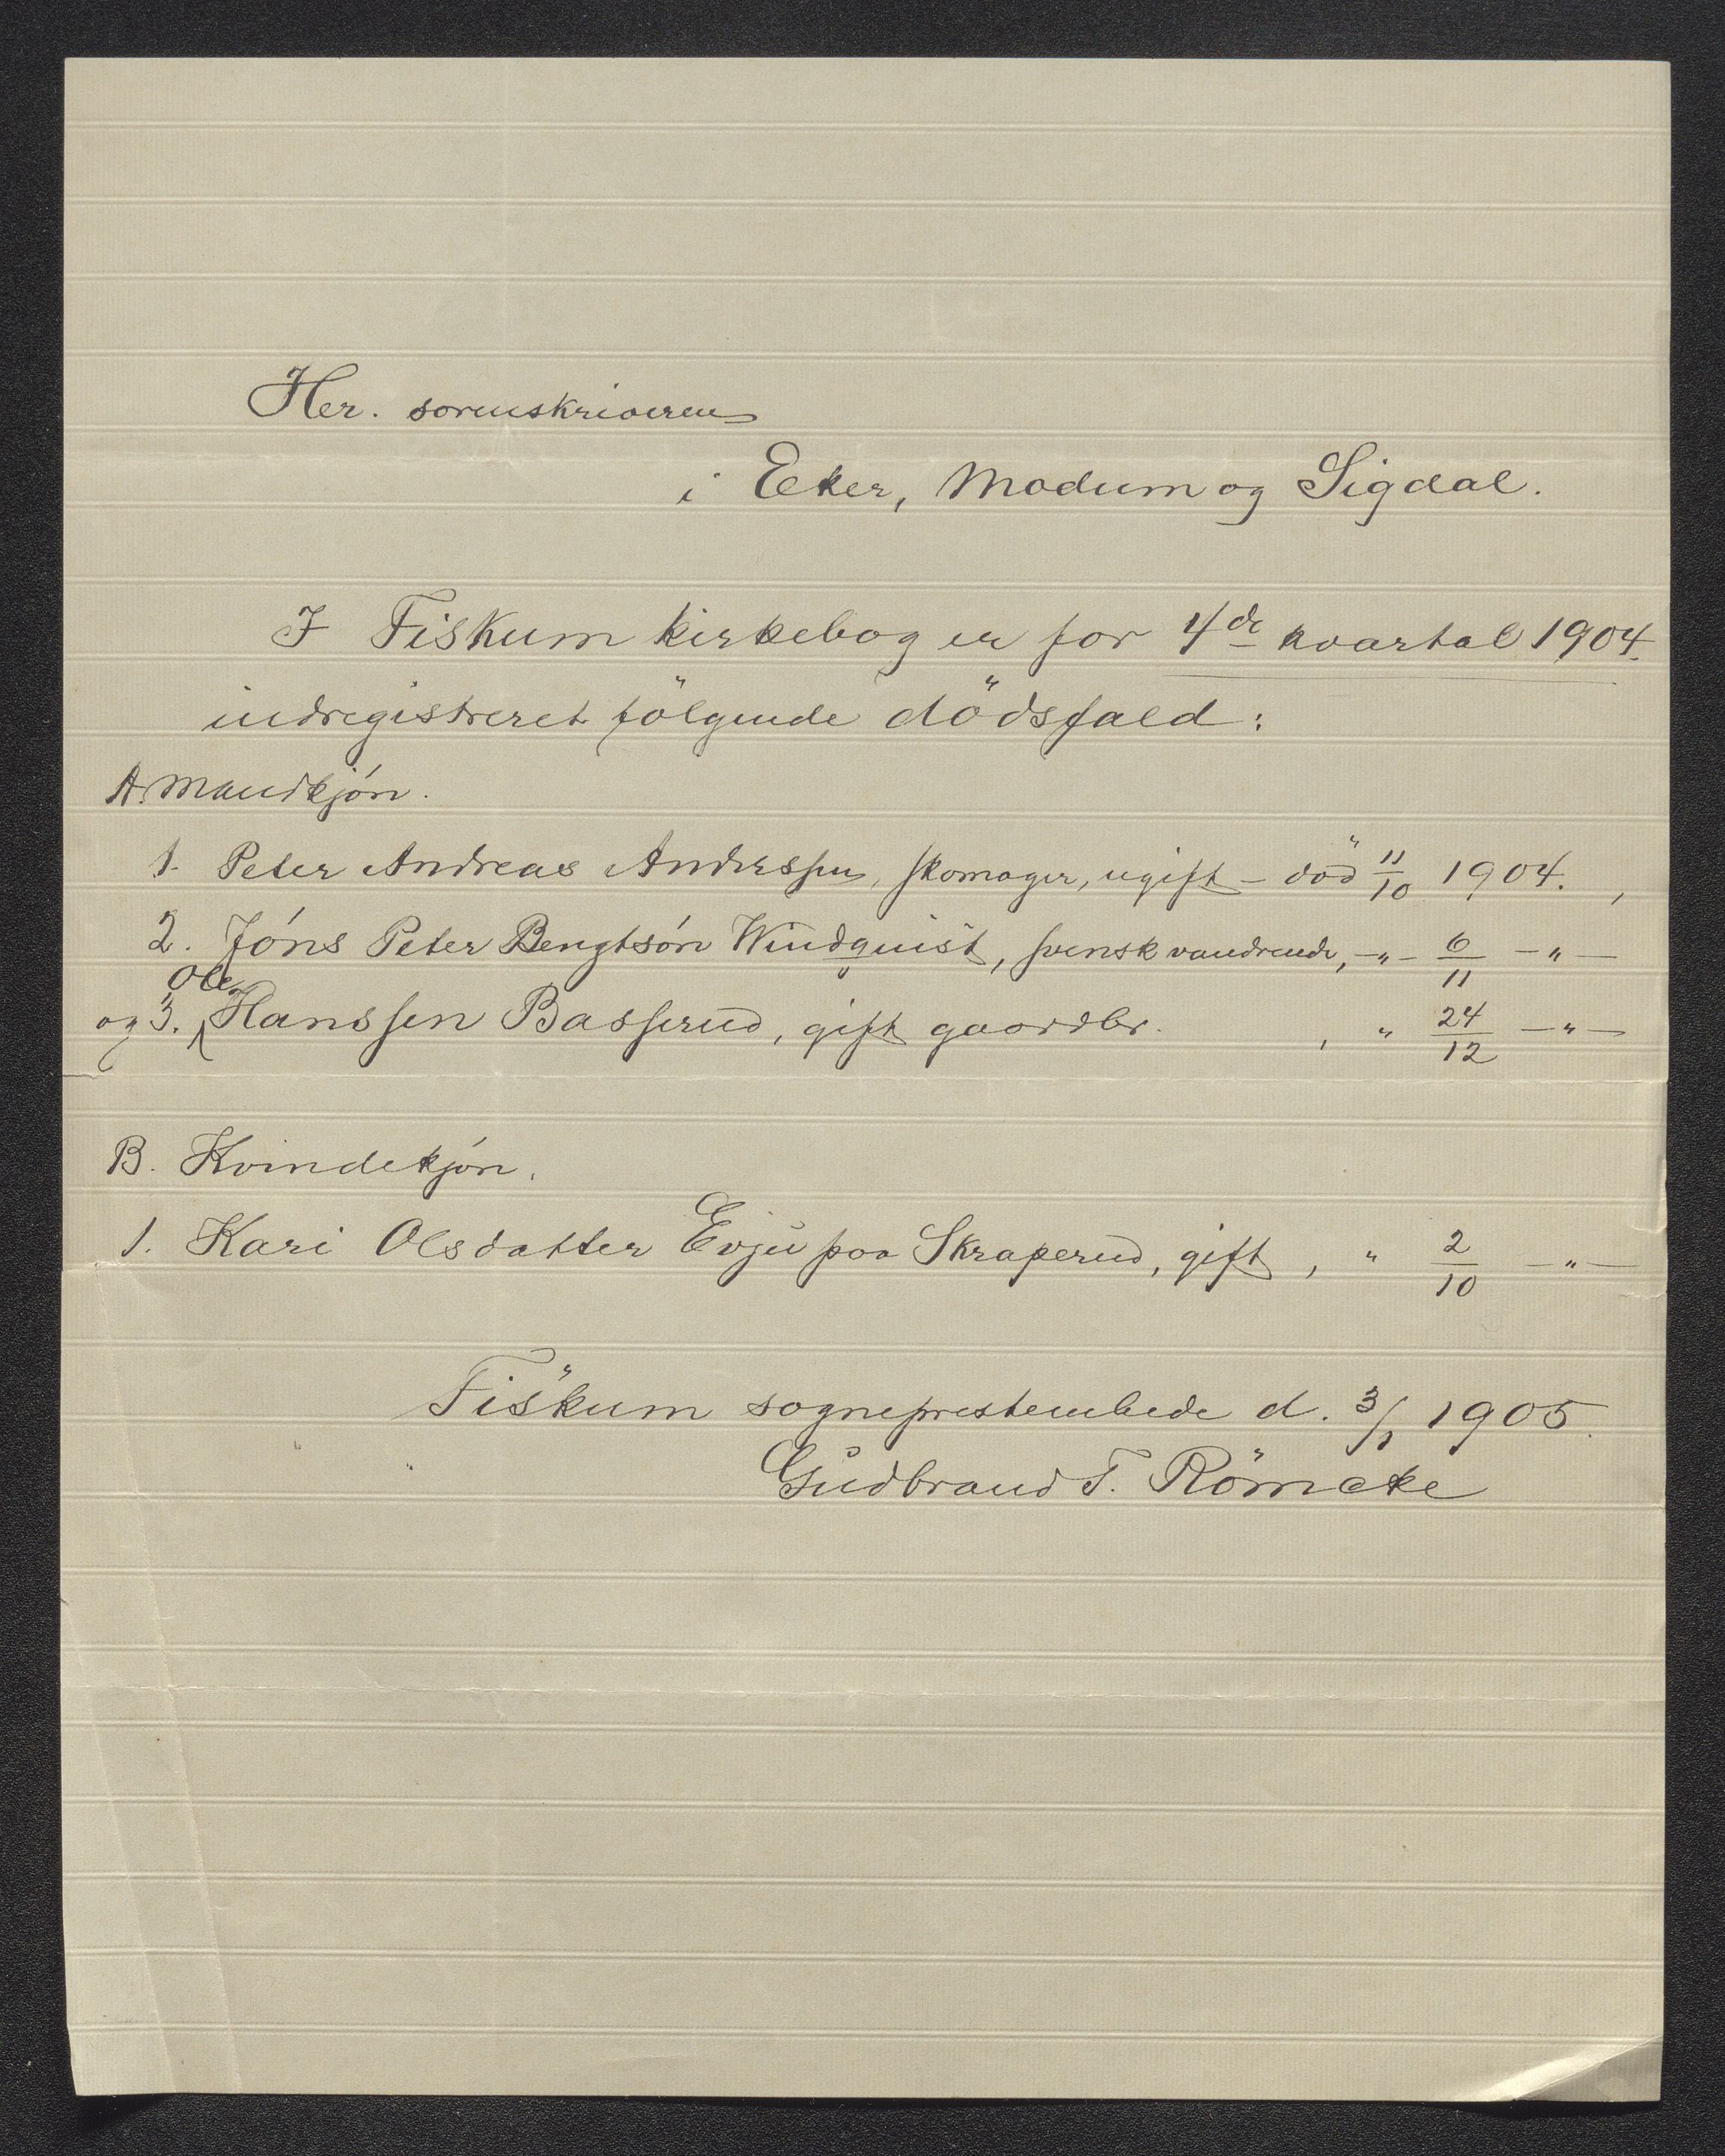 Her. sorenskriveren
i Eker, Modum og Sigdal.
I Fiskum kirkebog er for 4de kvartal 1904.
indregistreret følgende dödsfald:
A. Mandkjön.
1. Peter Andreas Anderssen, skomager, ugift - död 11/10 1904. ,
2. Jöns Peter Bengtsön Windquist, svensk vandrende, -"- 6/11 -"-
Ole
og 3. Hanssen Basserud, gift gaardbr. , " 24/12 -"-
B. Kvindekjön.
1. Kari Olsdatter Evju paa Skraperud, gift , " 2/10 -"-
Fiskum sogneprestembede d. 3/1 1905.
Gudbrand F. Römcke